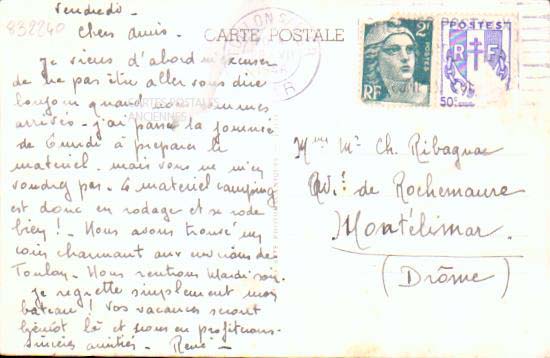 832240
Vendredi.
Chers amis.
Je viens d'abord m'excuser
de ne pas être aller vous dire
bonjour quand nous sommes
arrivés. j'ai passé la journée
de lundi à préparer le
matériel. mais vous ne m'en
voudrez pas. Le matériel camping
est donc en rodage et se rode
bien ! Nous avons trouvé un
coin charmant aux environs de
Toulon. Nous rentrons Mardi soir.
Je regrette simplement mon
bateau ! Vos vacances seront
bientôt là et nous en profiterons.
Sincères amitiés. René
CARTE POSTALE
CARTES POSTALES
ANCIENNES
2F
POSTES
RF
RF
50c
Ch. Ribagnac
de Rochemaure
Montélimar.
(Drôme)